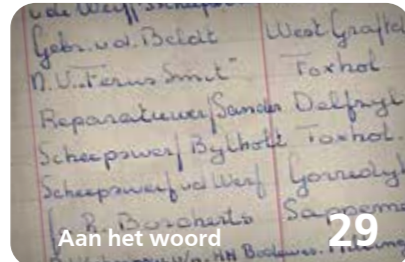 v.d. Werff Scheeps
Gebr. v.d. Beldt West Graftd
N.V. "Ferus Smit" Foxhol
Reparatiewerf Sander Delfzyl
Scheepswerf Bylholt Foxhol.
Scheepswerf vd Werf Gorredyk
R. Borcherts Sappeme
HH Bodewes.
Aan het woord 29